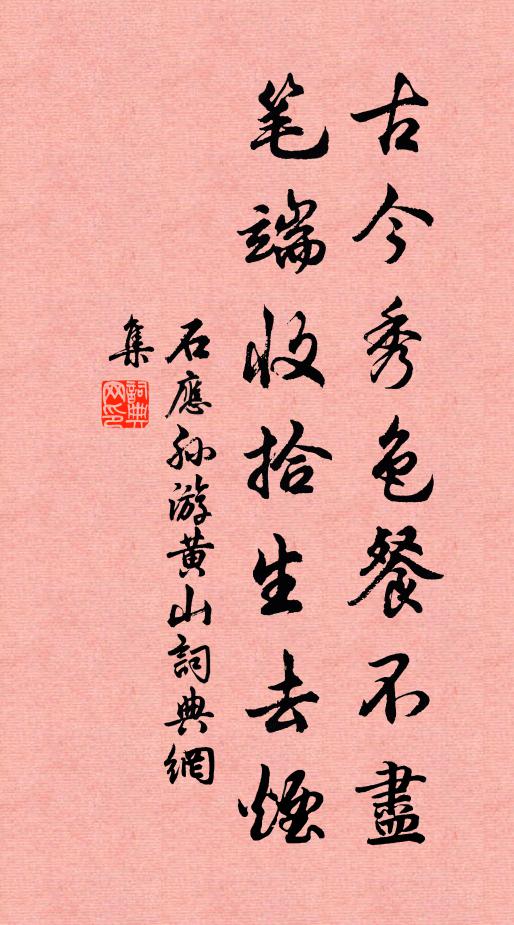 古今秀色餐不盡
笔端收拾生去煙
石應孙游黄山詞典網
集
詞典
网印